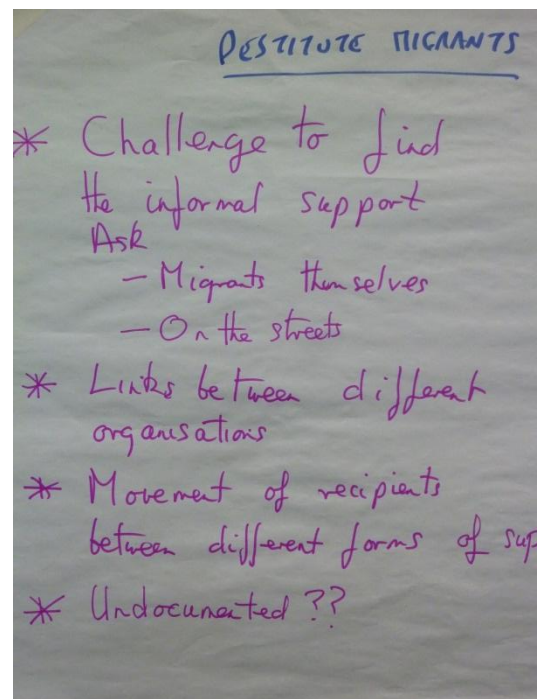 DESTITUTE MIGRANTS
* Challenge to find
the informal support
Ask
- Migrants themselves
- On the streets
* Links between different
organisations
* Movement of recipients
between different forms of sup
* Undocumented ??